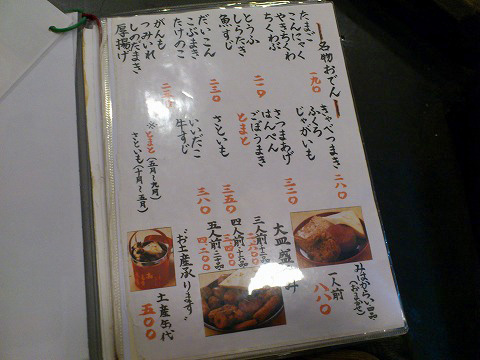 名物おでん
たまご
こんにゃく
やきちくわ
ちくわぶ
一九〇
とうふ
しらたき
魚すじ
二一〇
だいこん
こぶまき
たけのこ
二三〇
がんも
つみいれ
しのだまき
厚揚げ
きゃべつまき
ふくろ
じゃがいも
二八〇
さつまあげ
はんぺん
ごぼうまき
とまと
三二〇
さといも
三五〇
いいだこ
牛すじ
三八〇
※とまと(五月〜九月)
さといも(十月〜五月)
みはからい四品
(おまかせ)
一人前
八八〇
大皿盛
三人前十二品
四人前十六品
五人前二十品
四二〇〇
"お土産承ります"
土産缶代
五〇〇